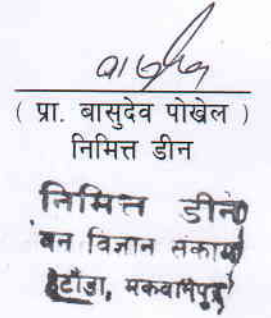 ( प्रा. बासुदेव पोखेल )
निमित्त डीन
निमित्त डीन
बन विज्ञान संकाय
हेटौंडा, मकवानपुर